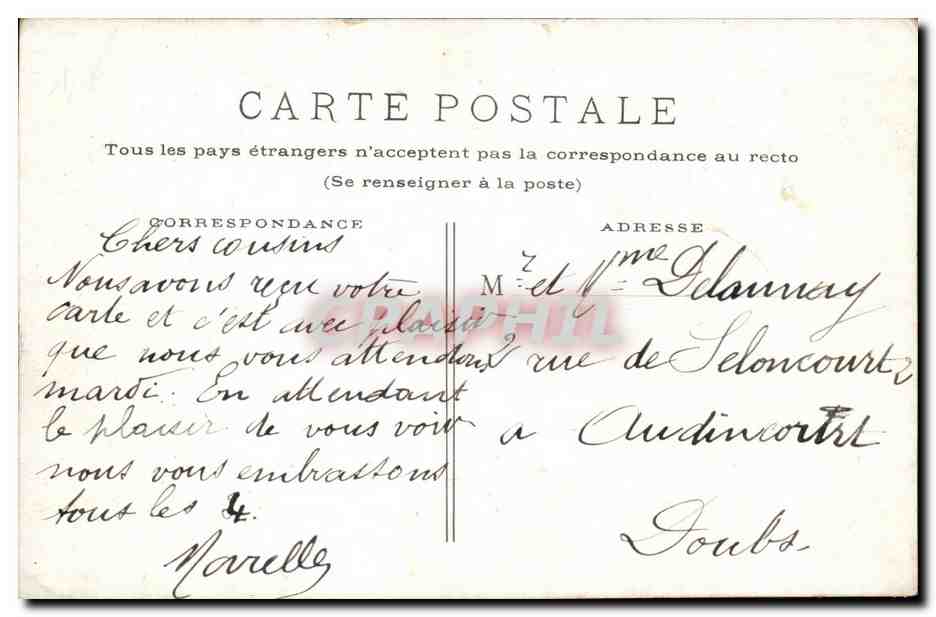 CARTE POSTALE
Tous les pays étrangers n'acceptent pas la correspondance au recto
(Se renseigner à la poste)
CORRESPONDANCE
Chers cousins
Nous avons reçu votre
carte et c'est avec plaisir
que nous vous attendons
mardi. En attendant
le plaisir de vous voir
nous vous embrassons
tous les 4.
ADRESSE
Mr et Mme Delaunay
2 rue de Seloncourt 2
a Audincourt
Doubs
CPAPHIL